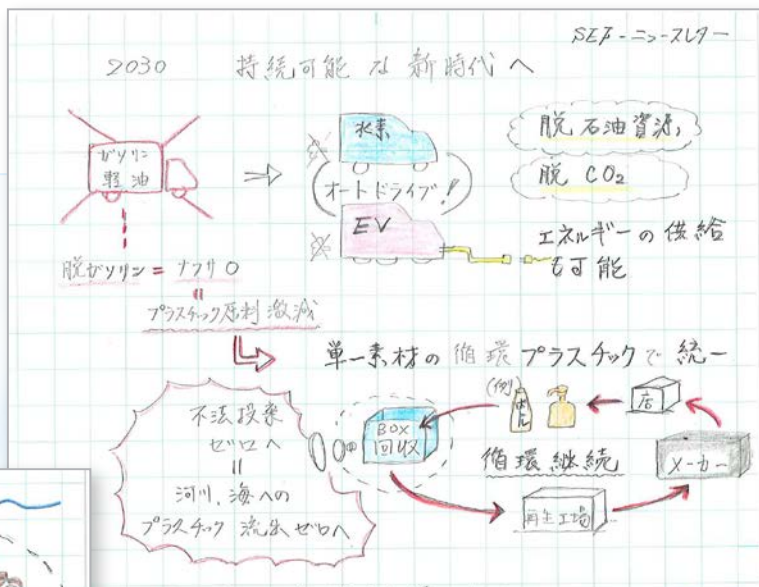 SEF-ニュースレター
2030 持続可能な新時代へ
ガソリン
軽油
水素
オートドライブ!!
EV
脱石油資源,
脱CO₂
エネルギーの供給
も可能
脱ガソリン=ナフサ0
〃
プラスチック原料激減
単一素材の循環プラスチックで統一
不法投棄
ゼロへ
〃
河川、海への
プラスチック流出ゼロへ
BOX
回収
(例)
店
メーカー
循環継続
再生工場